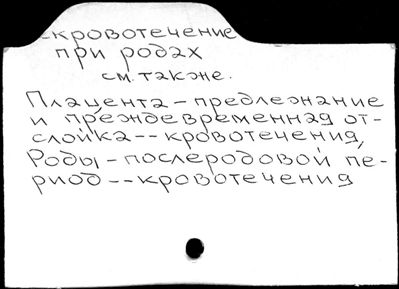 -кровотечение
при родах
см. также.
Плацента - предлежание
и преждевременная от-
слойка -- кровотечения,
Роды - послеродовой пе-
риод -- кровотечения